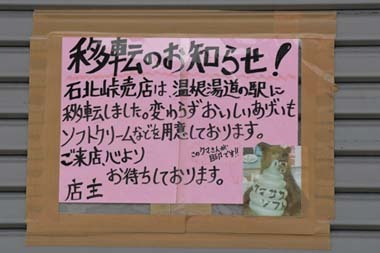 移転のお知らせ!
石北峠売店は、温根湯道の駅に
移転しました。変わらずおいしいあげいも
ソフトクリームなどを用意しております。
ご来店、心より
お待ちしております。
店主
このクマさんが
目印です!!
クマササ
ソフト